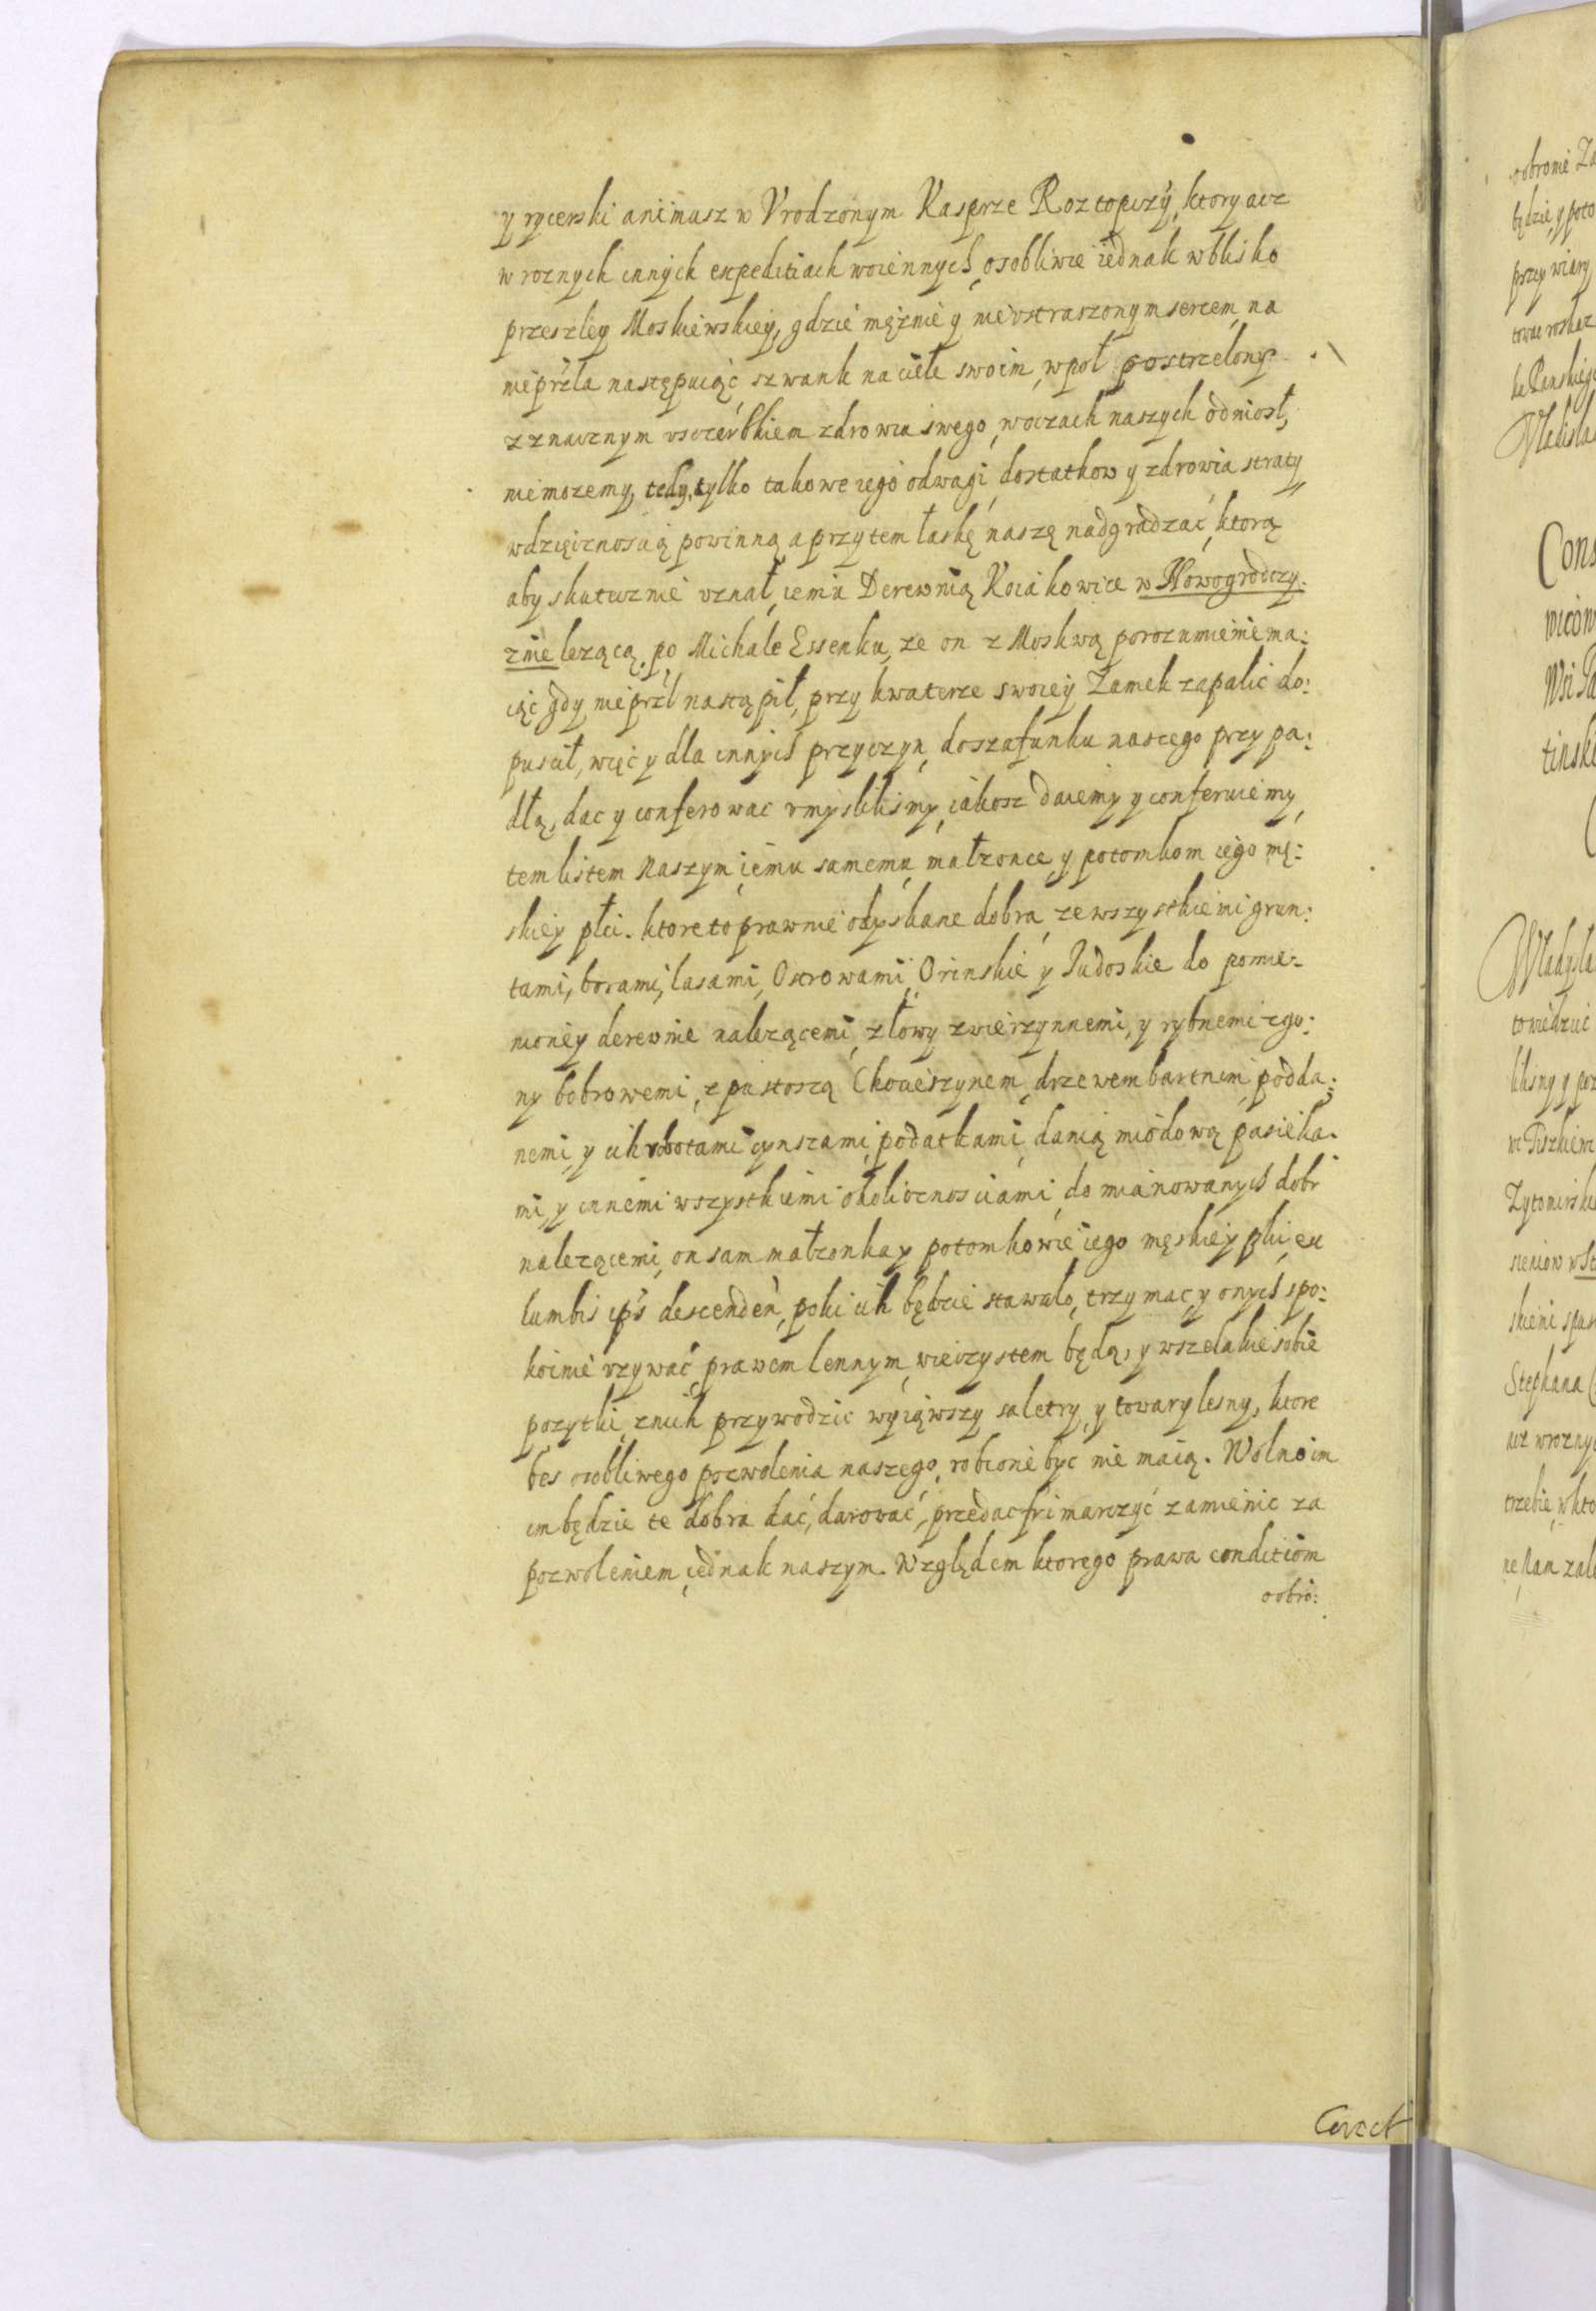 y rycerski animusz w Vrodzonym Kasprze Roztopczy, ktory acz
w roznych innych expeditiach woiennych, osobliwie iednak w blisko
przeszley Moskiewskiey, gdzie mężnie y nievstraszonym sercem na
nieprźla następuiąc, szwank na ciele swoim, wpoł postrzelony
z znacznym vszczerbkiem zdrowia swego, w oczach naszych odniosł,
nie mozemy, tedy, tylko takowe iego odwagi, dostatkow y zdrowia straty
wdzięcznoscią powinną a przytem łaskę naszę nadgradzać, ktorą
aby skutecznie vznał, iemu Derewnią Kociakowice w Nowogrodczy:
znie lezącą, po Michale Essenku, ze on z Moskwą porozumienie ma:
iąc gdy nieprźl nastąpił, przy kwaterze swoiey Zamek zapalic do:
puscił, więc y dla innych przyczyn, do szafunku naszego przypa:
dłą, dac y conferowac vmyslilismy, iakosz daiemy y conferuiemy,
tem listem Naszym iemu samemu, małzonce y potomkom iego mę:
skiey płci. ktore to prawnie odyskane dobra, ze wszystkiemi grun:
tami, borami, lasami, Ostrowami, Orinskie y Judoskie do pomie:
nioney derewnie nalezącemi, z łowy zwierzynnemi, y rybnemi z go:
ny bobrowemi, z pustoszą Chocieszynem, drzewem bartnim, podda:
nemi, y ich robotami czynszami, podatkami, danią miodową pasieka:
mi, y innemi wszystkiemi okolicznosciami, do mianowanych dobr
nalezącemi, on sam małzonka y potomkowie iego męskiey płci, ex
lumbis ip's descendeń, poki ich będzie stawało, trzymac, y onych spo:
koinie vzywać, prawem lennym, wieczystem będą, y wszelakie sobie
pozytki z nich przywodzic wyiąwszy saletry, y towary lesny, ktore
bes osobliwego pozwolenia naszego, robione byc nie maią. Wolno im
im będzie te dobra dać, darować, przedac frimarczyć zamienic za
pozwoleniem iednak naszym. Względem ktorego prawa conditiom
oobro:
Corect